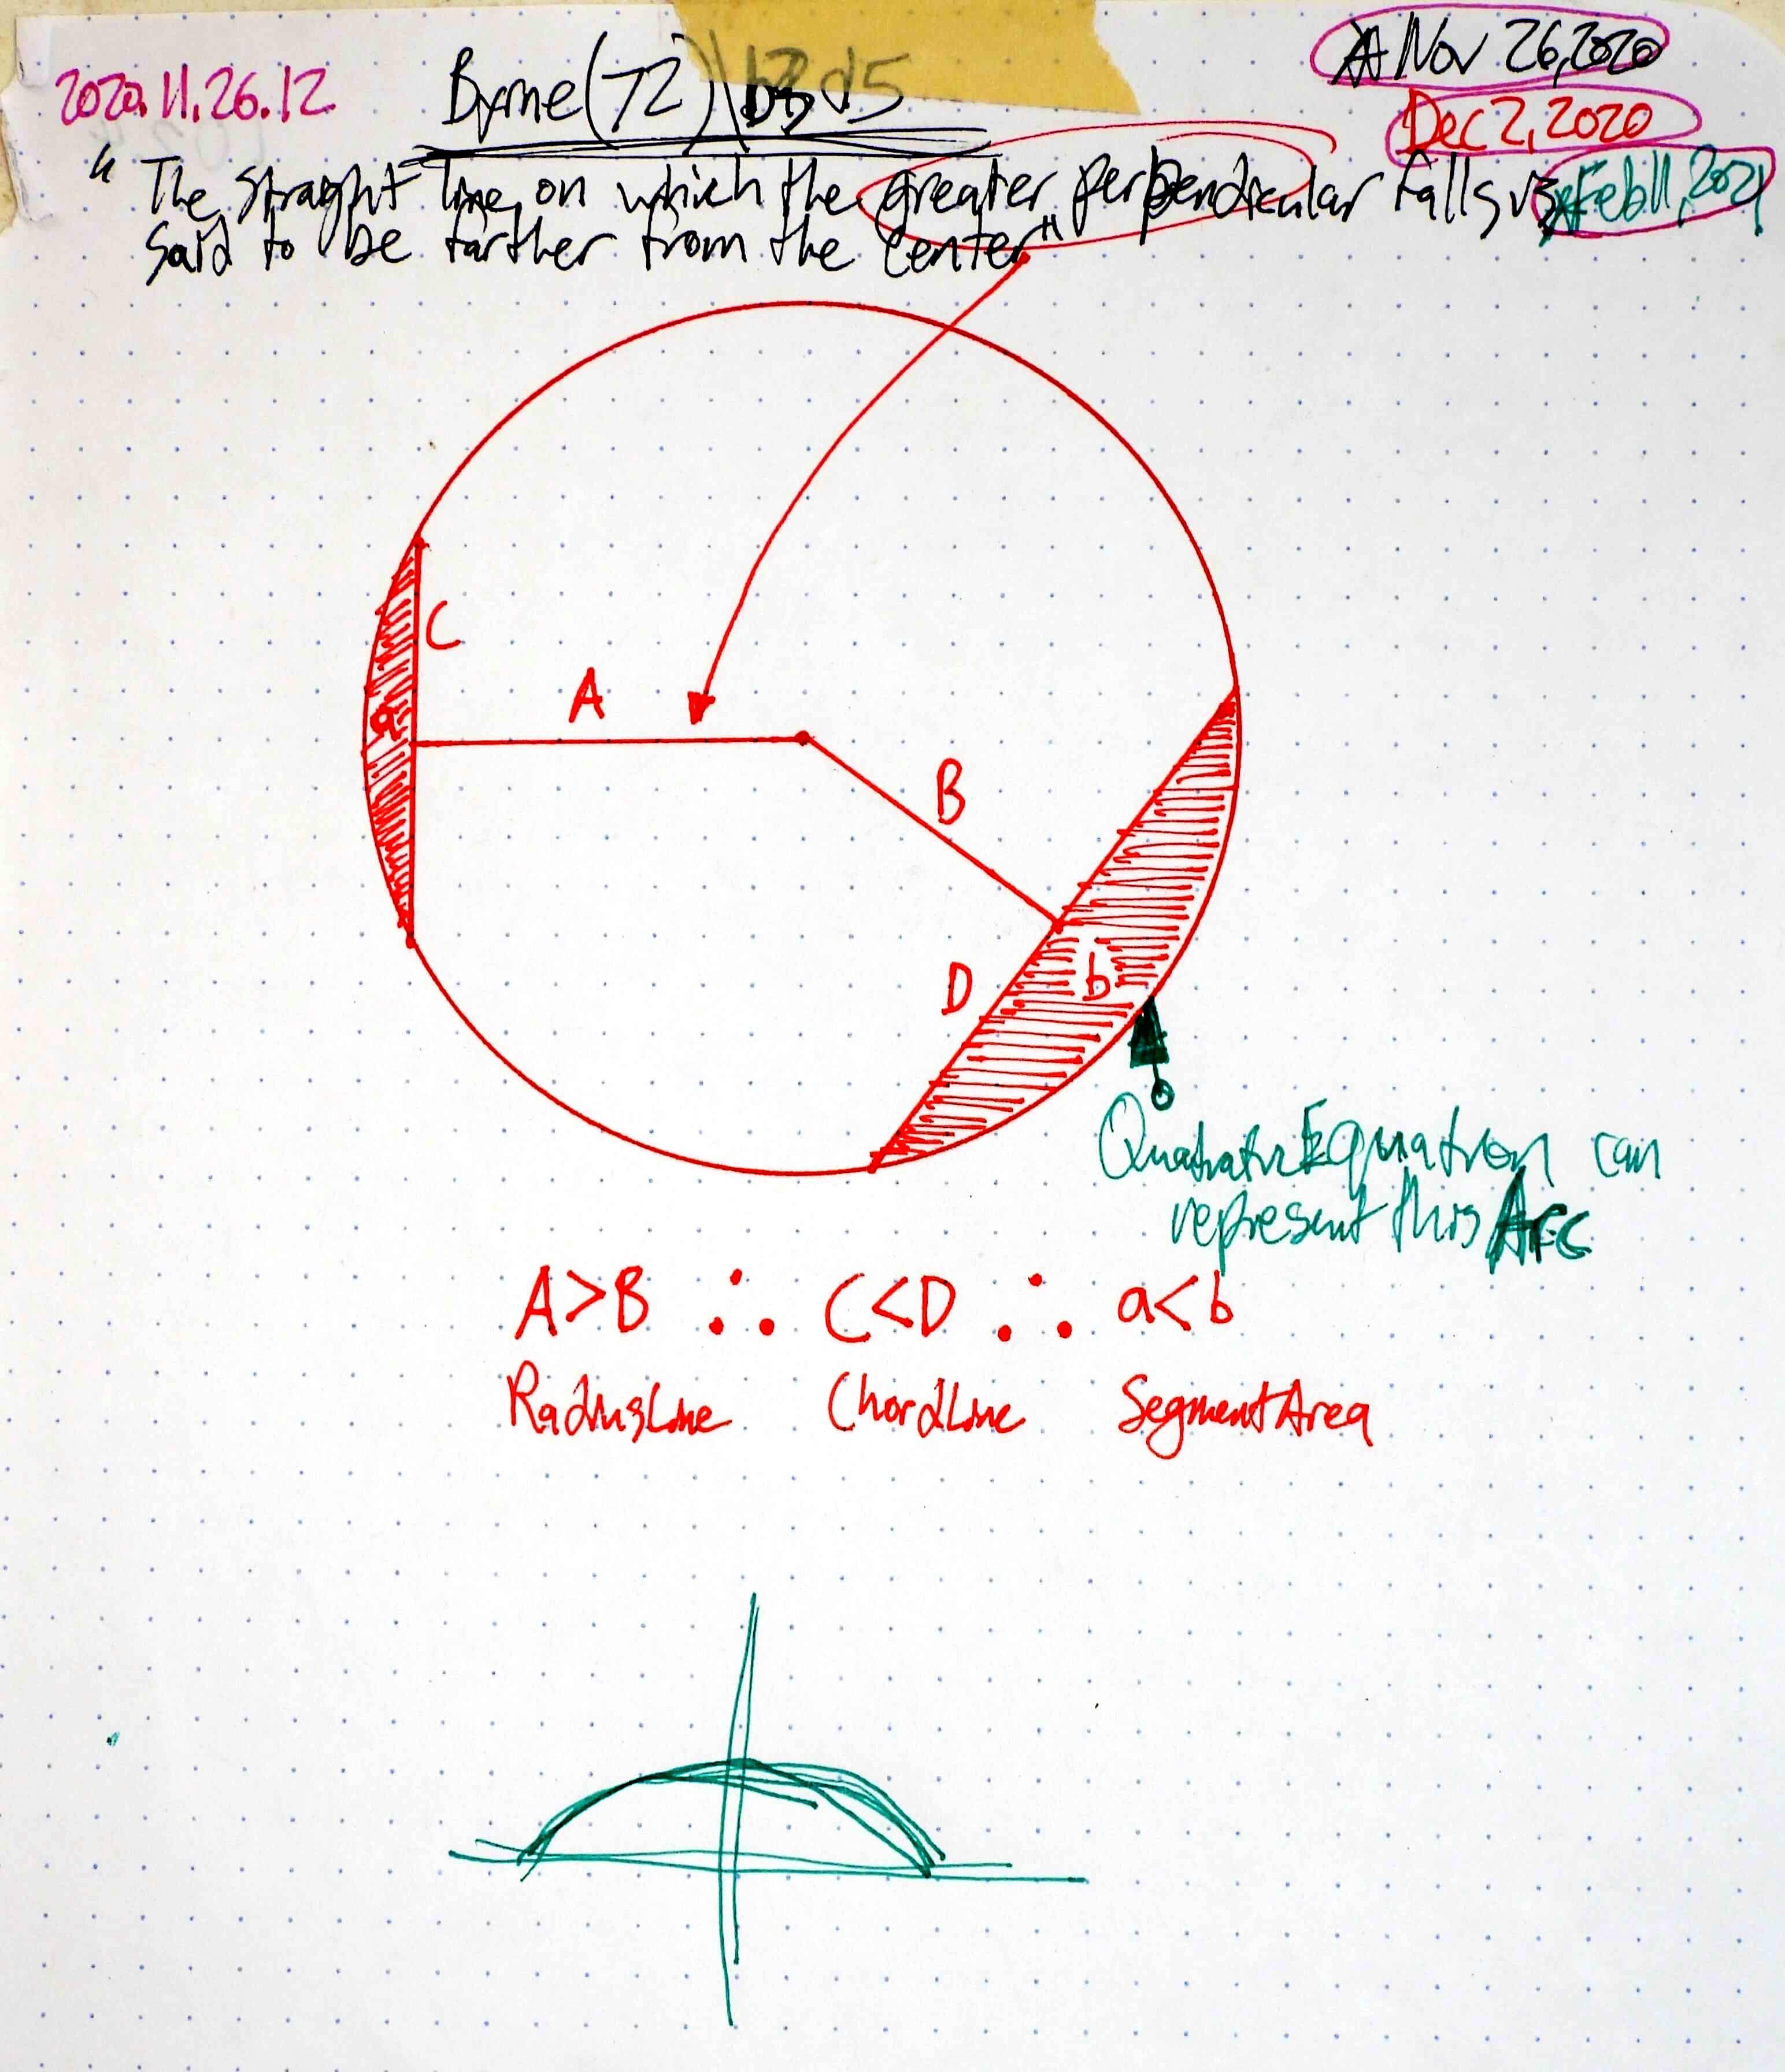 2020.11.26.12
Byrne(72)\b3d5
Nov 26,2020
Dec 2, 2020
Feb 11, 2021
"The straight line on which the greater perpendicular falls is
said to be farther from the center"
C
A
a
B
D
b
Quadratic Equation can
represent this Arc
A>B ∴ C<D ∴ a<b
RadiusLine ChordLine SegmentArea